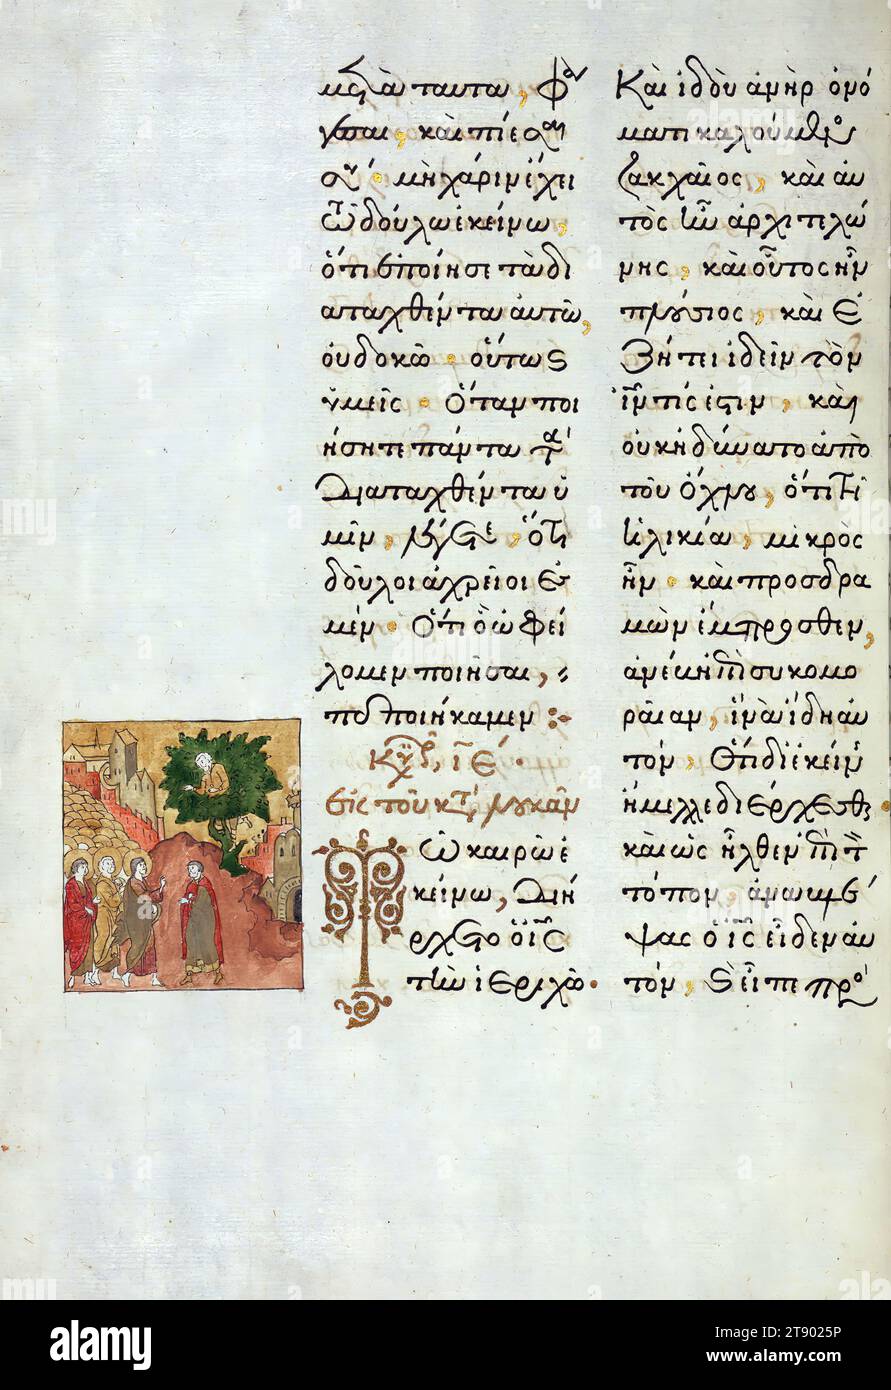 μετὰ ταῦτα, φά
γεσαι, καὶ πίεσαι
σύ· μὴ χάριν ἔχει
τῶ δούλω ἐκείνω,
ὅτι ἐποίησε τὰ δι
αταχθέντα αὐτῶ,
οὐ δοκῶ· οὕτως
ὑμεῖς· ὅταν ποι
ήσητε πάντα τὰ
διαταχθέντα ὑ
μῖν, λέγετε, ὅτι
δοῦλοι ἀχρεῖοι ἐσ
μέν· ὅτι ὃ ὠφεί
λομεν ποιῆσαι,
πεποιήκαμεν :·
ἐκ τοῦ κατὰ λουκᾶν
Τῶ καιρῶ ἐ
κείνω, διή
ρχετο ὁ ις
τὴν ἱεριχὼ·
Καὶ ἰδοὺ ἀνὴρ ὀνό
ματι καλούμενος
ζακχαῖος, καὶ αὐ
τὸς ἦν ἀρχιτελώ
νης, καὶ οὗτος ἦν
πλούσιος, καὶ ἐ
ζήτει ἰδεῖν τὸν
ιν τίς ἐστιν, καὶ
οὐκ ἠδύνατο ἀπὸ
τοῦ ὄχλου, ὅτι τῆ
ἡλικία, μικρὸς
ἦν· καὶ προσδρα
μὼν ἔμπροσθεν,
ἀνέβη ἐπὶ συκομο
ραίαν, ἵνα ἴδη αὐ
τόν· ὅτι δι ἐκείνης
ἤμελλε διέρχεσθαι·
καὶ ὡς ἦλθεν ἐπὶ τὸν
τόπον, ἀναβλέ
ψας ὁ ις εἶδεν αὐ
τόν, καὶ εἶπε πρὸς
alamy
Image ID: 2T9025P
www.alamy.com